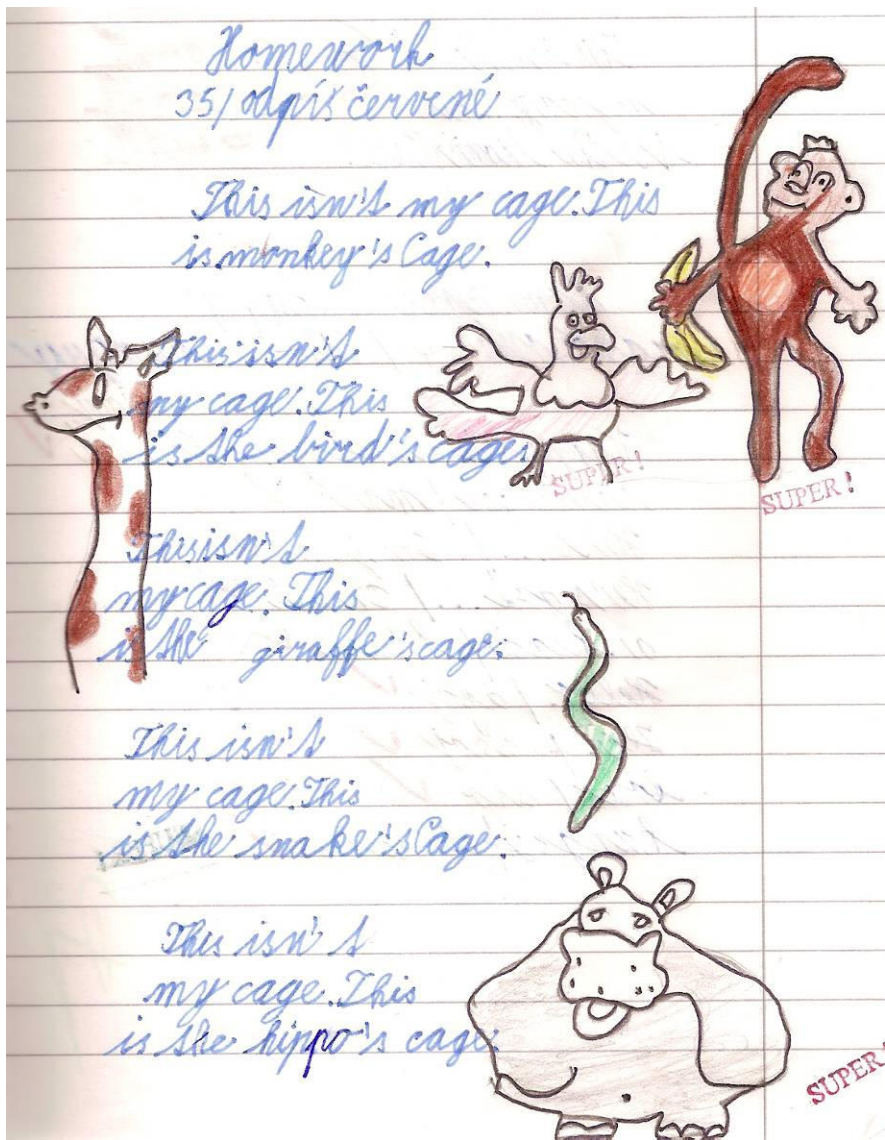 Homework
35/ odpíš červené
This isn't my cage. This
is monkey's Cage.
This isn't
my cage. This
is the bird's cage.
SUPER!
SUPER!
This isn't
my cage. This
is the giraffe's cage.
This isn't
my cage. This
is the snake's Cage.
This isn't
my cage. This
is the hippo's cage.
SUPER!